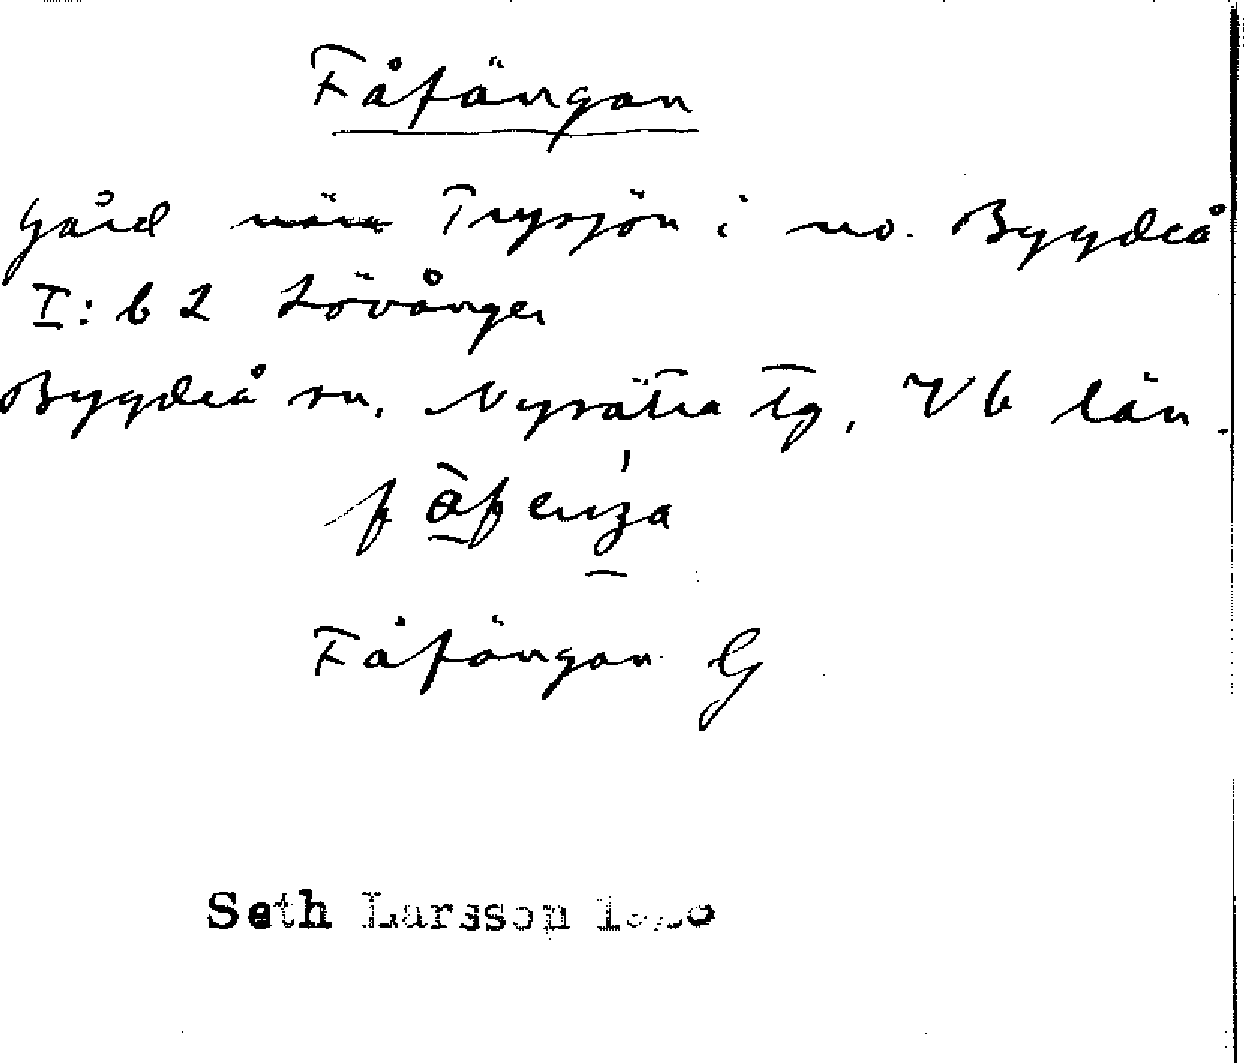 Fåfängan
Gård nära Trysjön i no. Bygdeå
I: b 2 Lövånger
Bygdeå sn. Nysätra tg, Vb län.
Fåfängan G
Seth Larsson